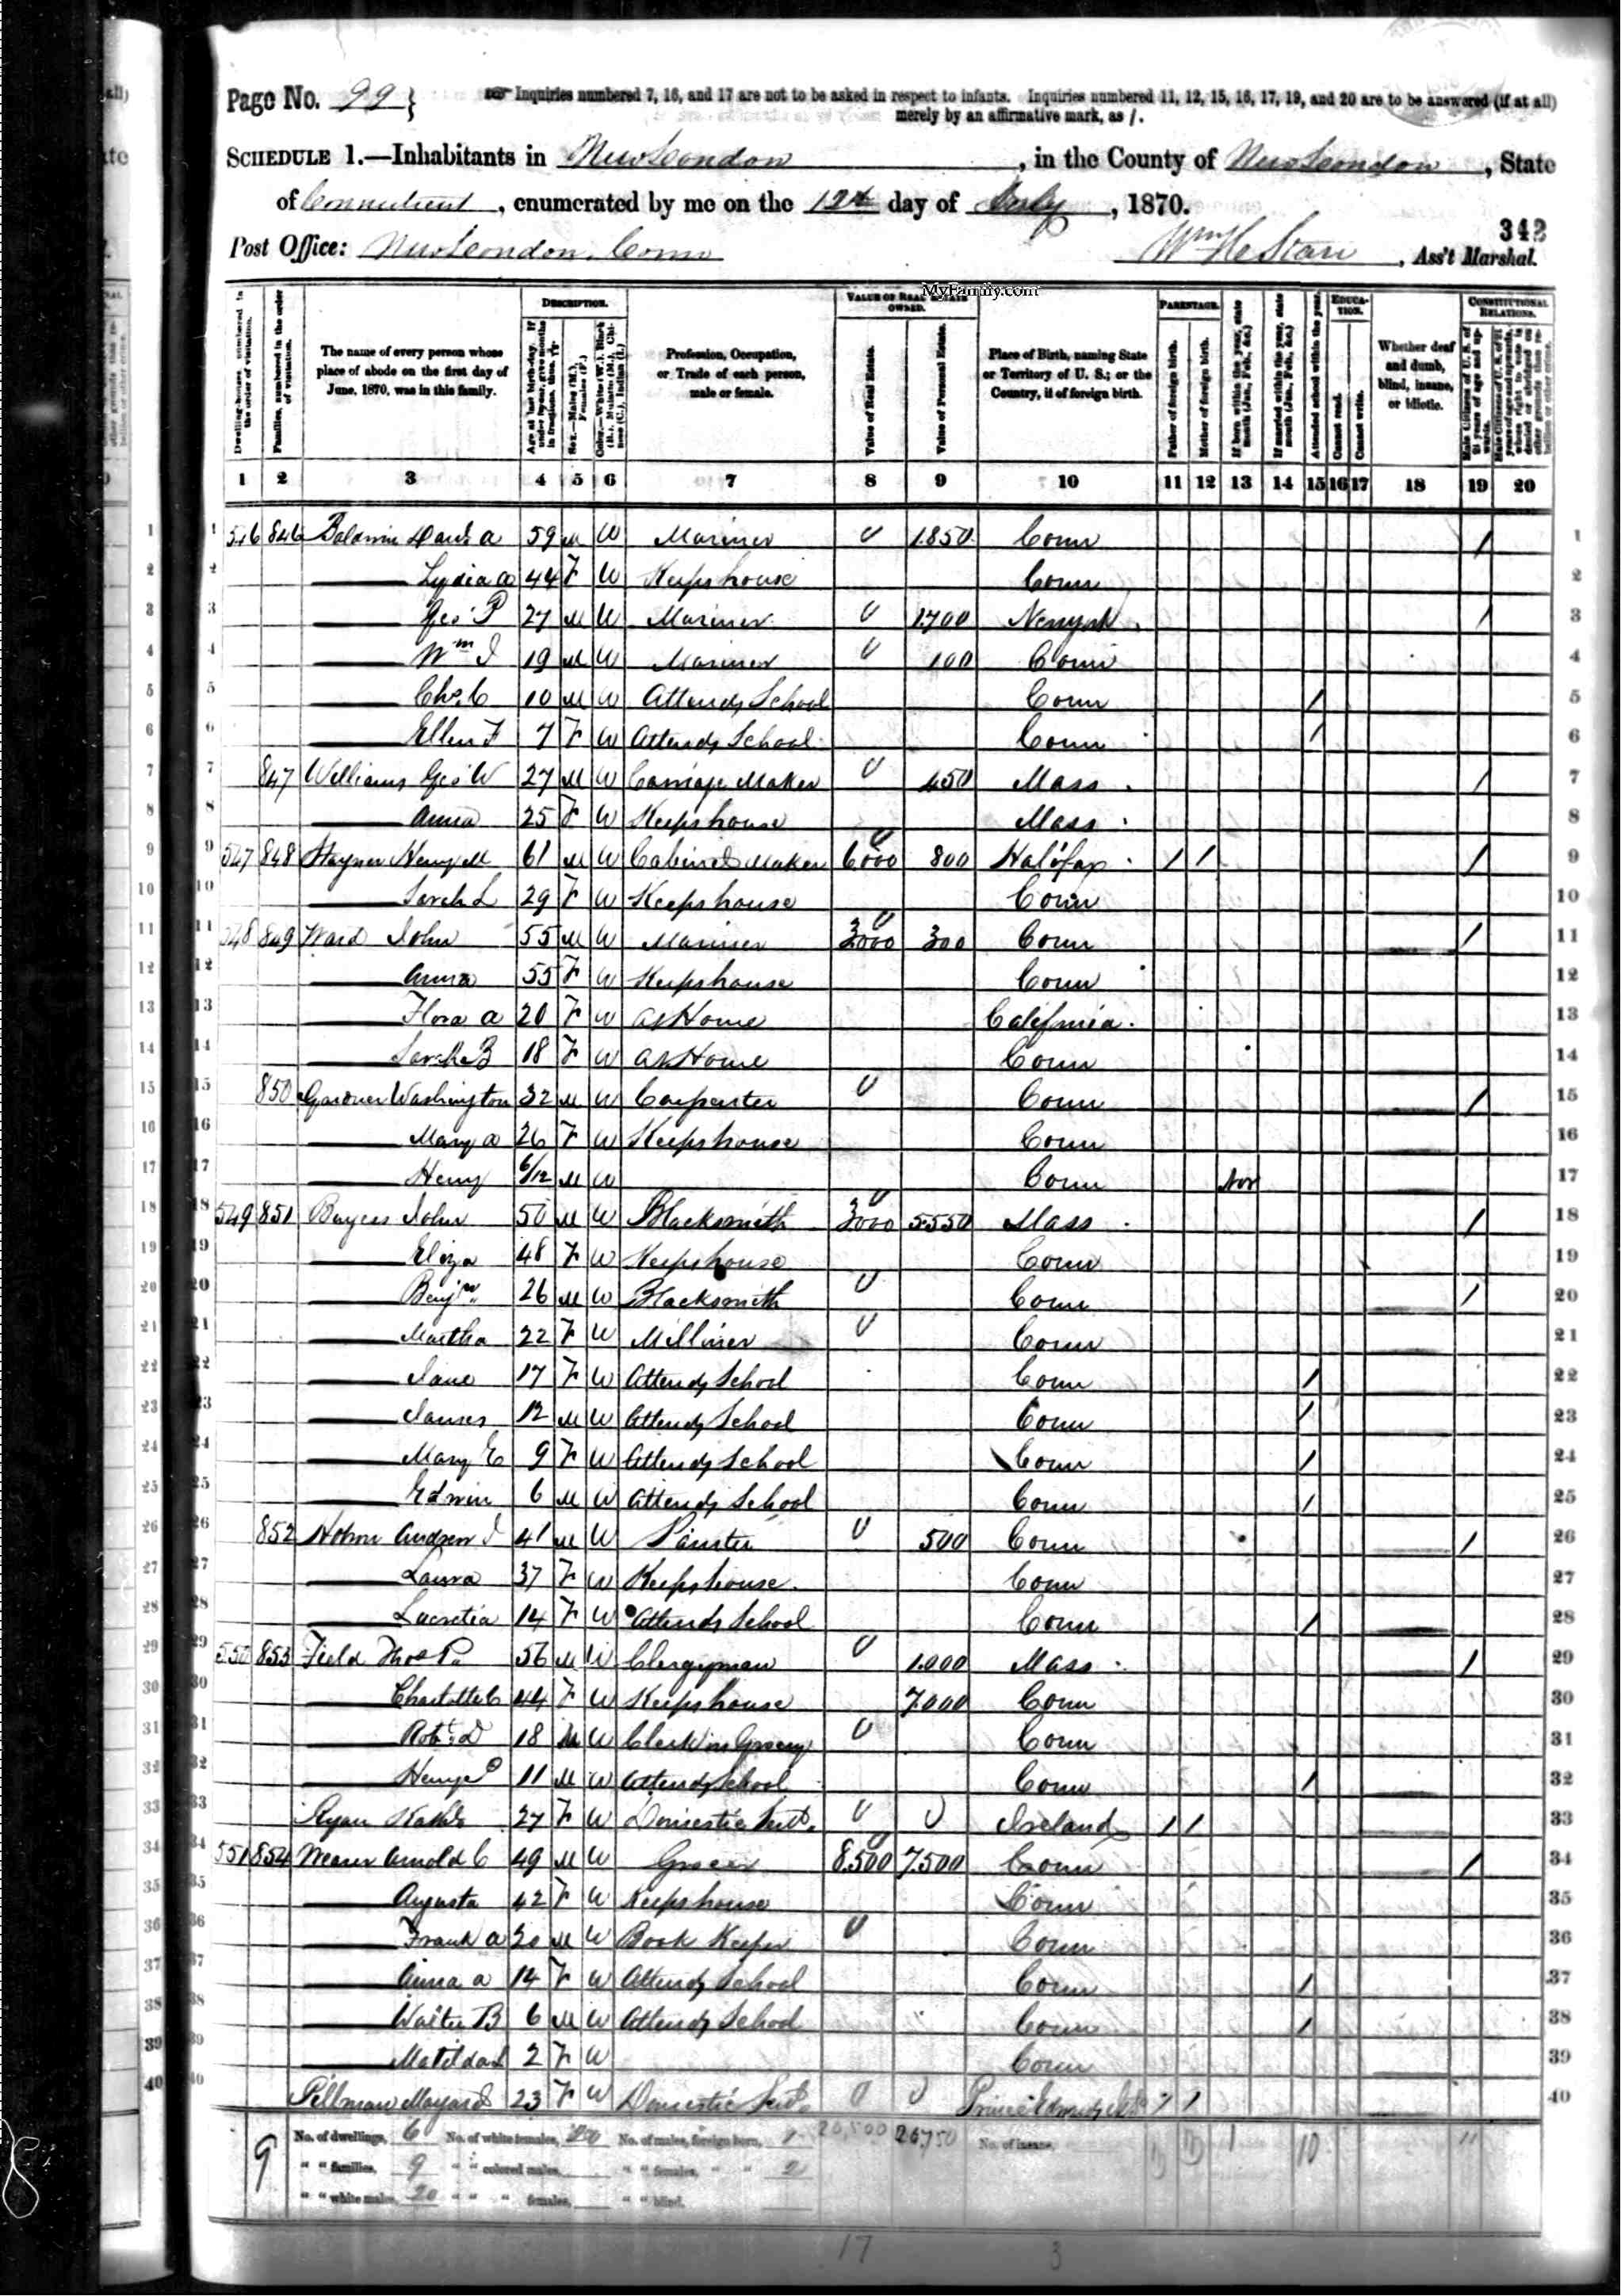 Page No. 99
Inquiries numbered 7, 16, and 17 are not to be asked in respect to infants. Inquiries numbered 11, 12, 15, 16, 17, 19, and 20 are to be answered (if at all)
merely by an affirmative mark, as /.
SCHEDULE 1.—Inhabitants in New London, in the County of New London, State
of Connecticut, enumerated by me on the 12th day of July, 1870.
342
Post Office: New London, Conn Wm H Starr, Ass't Marshal.
MyFamily.com
Dwelling-houses, numbered in the order of visitation.
Families, numbered in the order of visitation.
The name of every person whose place of abode on the first day of June, 1870, was in this family.
DESCRIPTION.
Age at last birth-day. If under 1 year, give months in fractions, thus, 3/12
Sex.—Males (M.), Females (F.)
Color.—White (W.), Black (B.), Mulatto (M.), Chinese (C.), Indian (I.)
Profession, Occupation, or Trade of each person, male or female.
VALUE OF REAL ESTATE OWNED.
Value of Real Estate.
Value of Personal Estate.
Place of Birth, naming State or Territory of U. S.; or the Country, if of foreign birth.
PARENTAGE.
Father of foreign birth.
Mother of foreign birth.
If born within the year, state month (Jan., Feb., &c.)
If married within the year, state month (Jan., Feb., &c.)
Attended school within the year.
EDUCATION.
Cannot read.
Cannot write.
Whether deaf and dumb, blind, insane, or idiotic.
CONSTITUTIONAL RELATIONS.
Male Citizens of U. S. of 21 years of age and upwards.
1 2 3 4 5 6 7 8 9 10 11 12 13 14 15 16 17 18 19 20
1 546 846 Baldwin A 59 M W Mariner 0 1850 Conn / 1
2 Lydia A 44 F W Keeps house Conn 2
3 Geo P 27 M W Mariner 0 1700 New York / 3
4 Wm I 19 M W Mariner 0 100 Conn 4
5 Chs C 10 M W Attends School Conn / 5
6 Ellen F 7 F W Attends School Conn / 6
7 847 Williams Geo W 27 M W Carriage Maker 0 450 Mass / 7
8 Anna 25 F W Keeps house Mass 8
9 547 848 Stayner Henry M 61 M W Cabinet Maker 6000 800 Halifax / / / 9
10 Sarah L 29 F W Keeps house Conn 10
11 548 849 Ward John 55 M W Mariner 3000 300 Conn / 11
12 Anna 55 F W Keeps house Conn 12
13 Flora A 20 F W At Home California 13
14 Sarah B 18 F W At Home Conn 14
15 850 Gardner Washington 32 M W Carpenter 0 Conn / 15
16 Mary A 26 F W Keeps house Conn 16
17 Henry 6/12 M W Conn Nov 17
18 549 851 John 50 M W Blacksmith 3000 5550 Mass / 18
19 Eliza 48 F W Keeps house Conn 19
20 Benjn 26 M W Blacksmith 0 Conn / 20
21 Martha 22 F W Milliner 0 Conn 21
22 Jane 17 F W Attends School Conn / 22
23 James 12 M W Attends School Conn / 23
24 Mary E 9 F W Attends School Conn / 24
25 Edwin 6 M W Attends School Conn / 25
26 852 Andrew J 41 M W Painter 0 500 Conn / 26
27 Laura 37 F W Keeps house Conn 27
28 Lucretia 14 F W Attends School Conn / 28
29 550 853 Field Thos P. 56 M W Clergyman 0 1.000 Mass / 29
30 Charlotte C 44 F W Keeps house 7.000 Conn 30
31 Robt D 18 M W Clerk in Grocery 0 Conn 31
32 Henry P 11 M W Attends School Conn / 32
33 Ryan Kate 27 F W Domestic Sert. 0 0 Ireland / / 33
34 551 854 Weaver Arnold C 49 M W Grocer 8.500 7.500 Conn / 34
35 Augusta 42 F W Keeps house Conn 35
36 Frank A 20 M W Book Keeper 0 Conn 36
37 Anna A 14 F W Attends School Conn / 37
38 Walter B 6 M W Attends School Conn / 38
39 Matilda 2 F W Conn 39
40 Pillman 23 F W Domestic Sert. 0 0 Prince Edwards Isld / / 40
9 No. of dwellings, 6 No. of white females, 20 No. of males, foreign born, 1 20,500 26,750 No. of insane, 1 10 11
" " families, 9 " " colored males, " " females, " " 2
" " white males, 20 " " " females, " " blind,
17 3